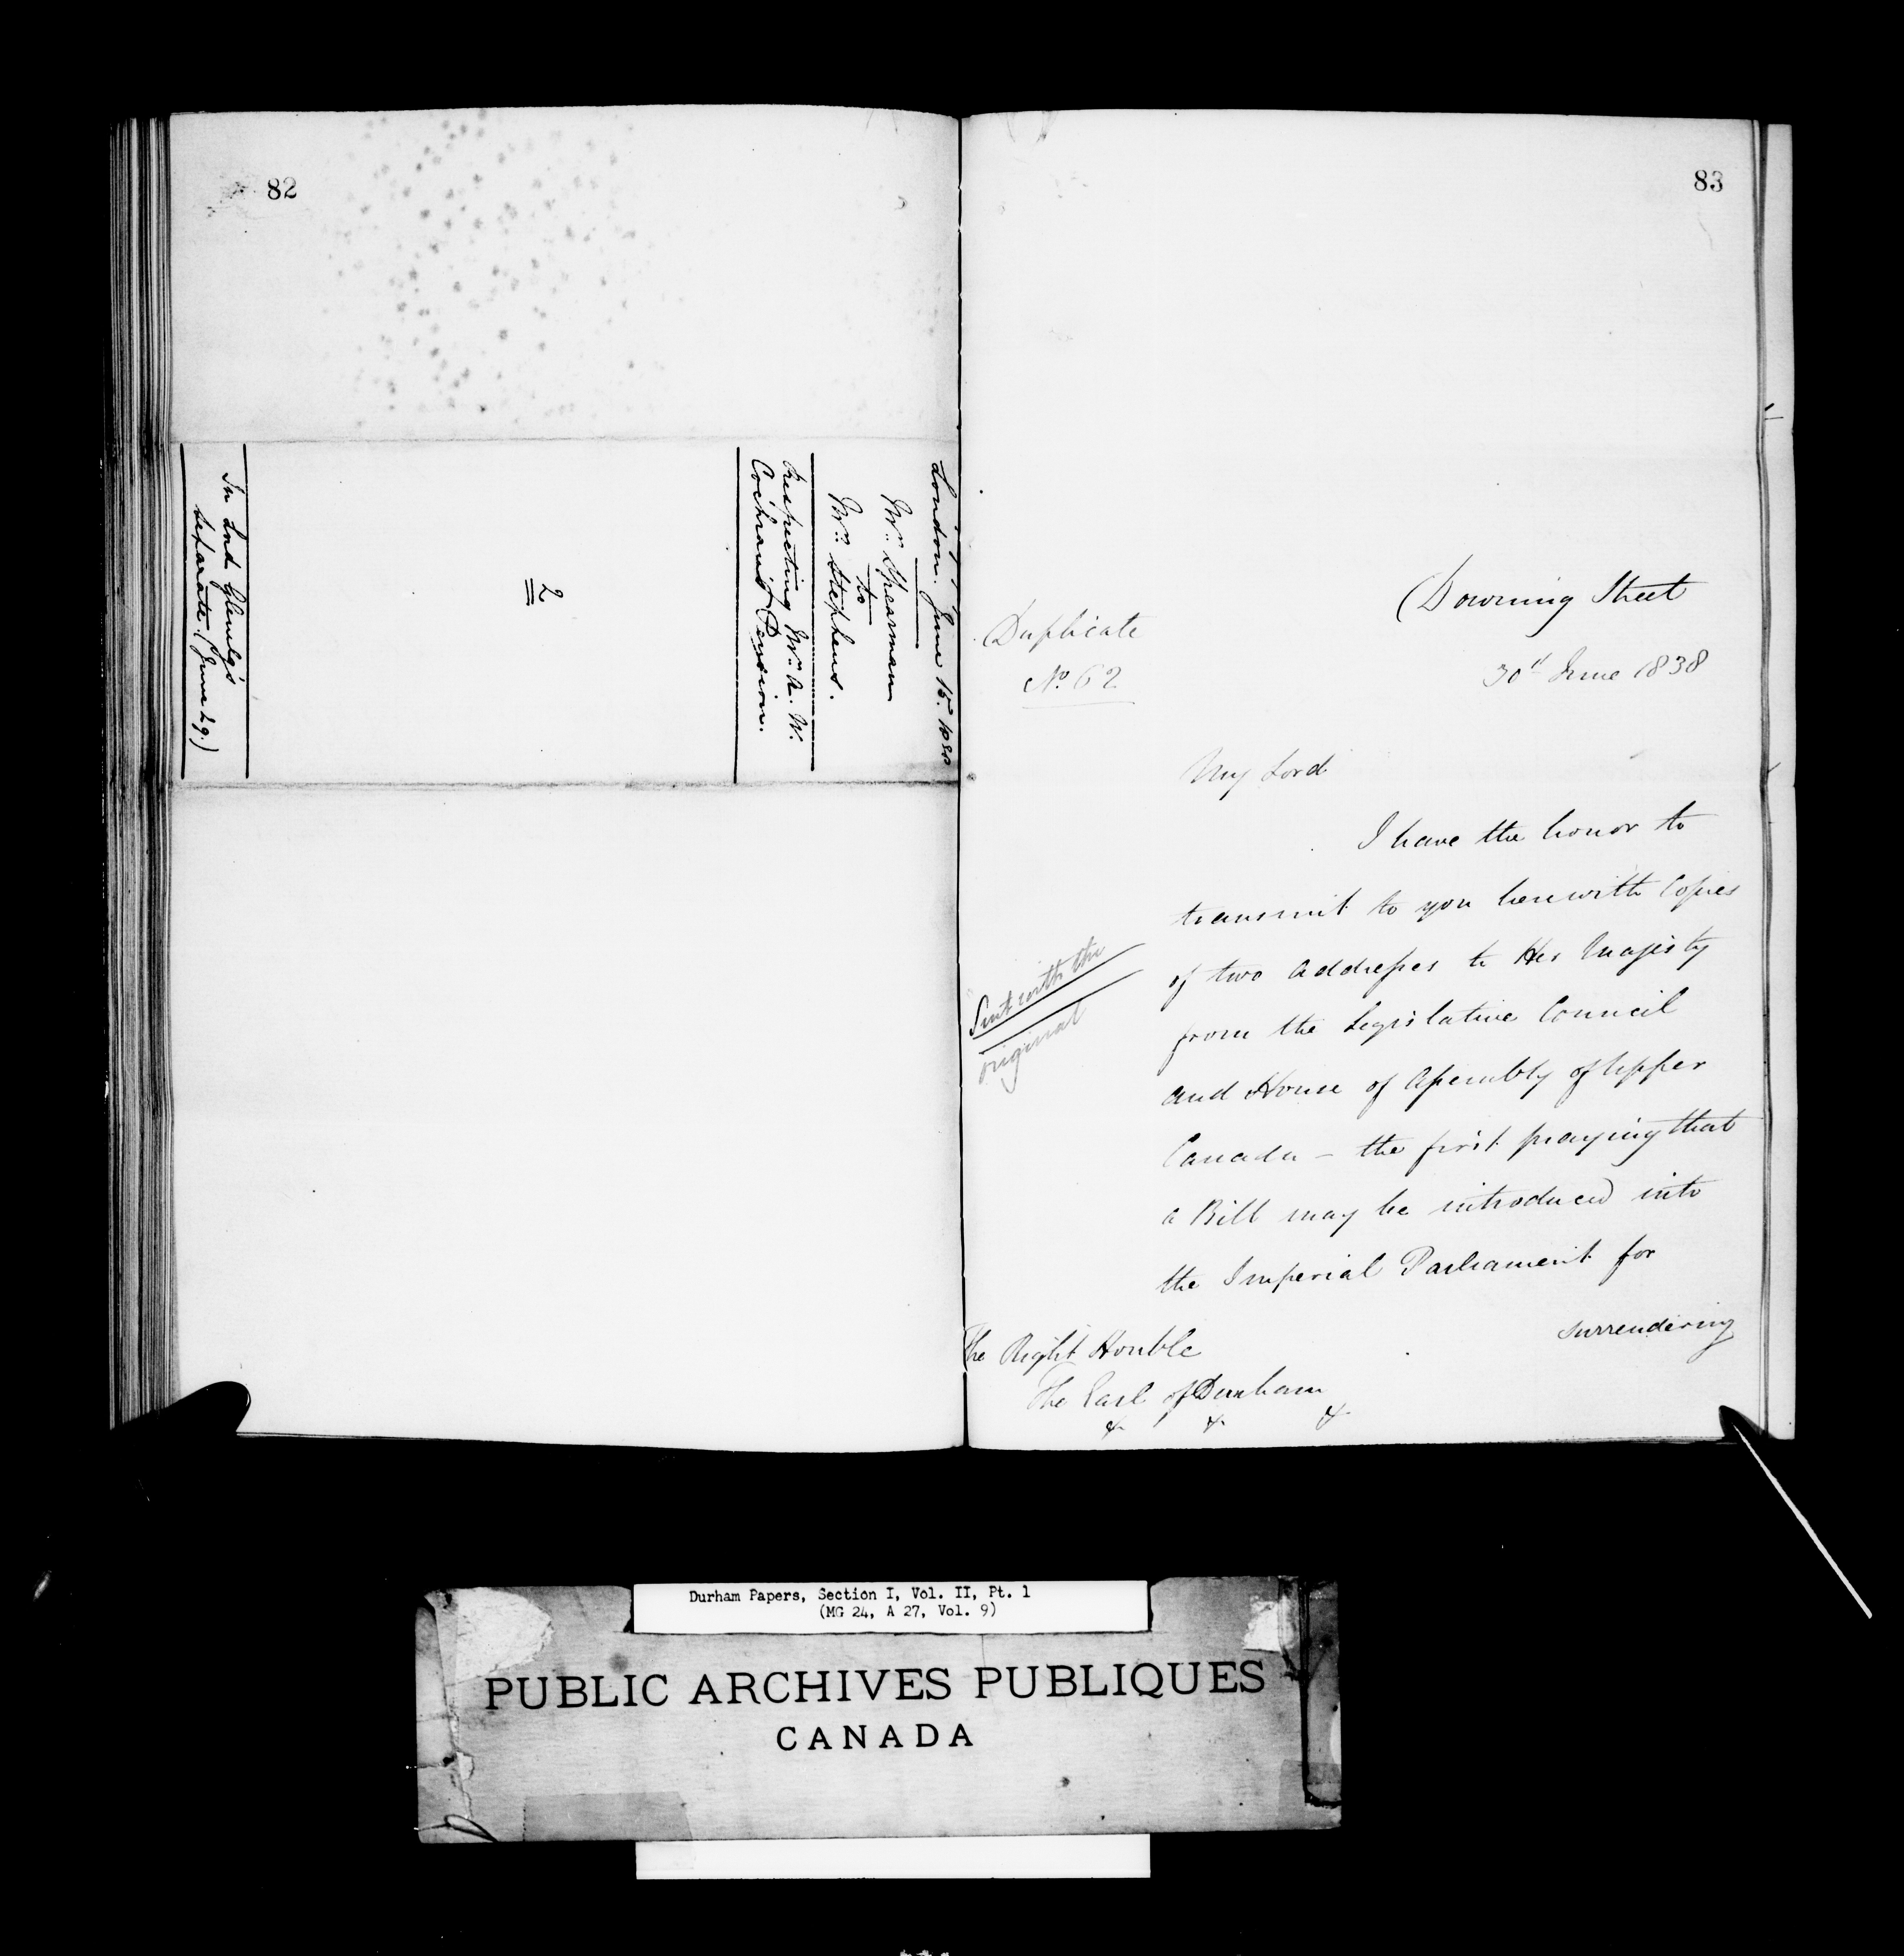 82
London. June 15. 1838
Mr. Spearman
to
Mr. Stephens.
Respecting Mr. A. W.
Cochran's Pension.
2
In Lord Glenelg's
separate (June 29.)
83
Duplicate
No. 62
Downing Street
30th June 1838
My Lord
I have the honor to
transmit to you herewith Copies
of two Addresses to Her Majesty
from the Legislative Council
and House of Assembly of Upper
Canada – the first praying that
a Bill may be introduced into
the Imperial Parliament for
surrendering
Sent with the
original
The Right Honble
The Earl of Durham
& & &
Durham Papers, Section I, Vol. II, Pt. 1
(MG 24, A 27, Vol. 9)
PUBLIC ARCHIVES PUBLIQUES
CANADA